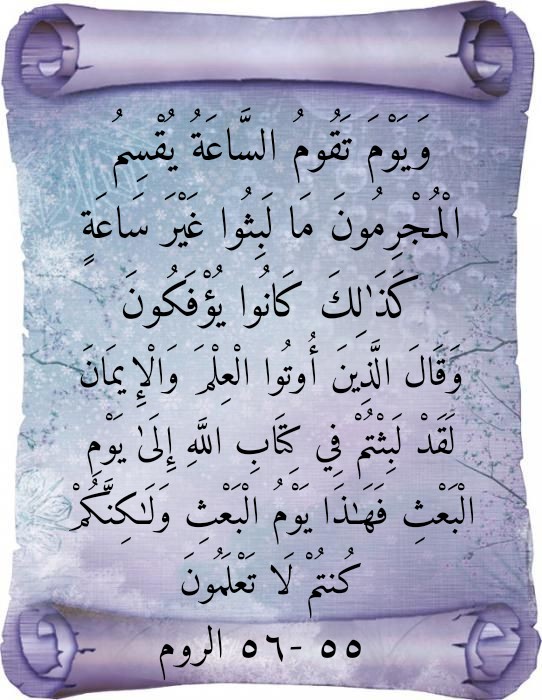 وَيَوْمَ تَقُومُ السَّاعَةُ يُقْسِمُ
الْمُجْرِمُونَ مَا لَبِثُوا غَيْرَ سَاعَةٍ
كَذَٰلِكَ كَانُوا يُؤْفَكُونَ
وَقَالَ الَّذِينَ أُوتُوا الْعِلْمَ وَالْإِيمَانَ
لَقَدْ لَبِثْتُمْ فِي كِتَابِ اللَّهِ إِلَىٰ يَوْمِ
الْبَعْثِ فَهَٰذَا يَوْمُ الْبَعْثِ وَلَٰكِنَّكُمْ
كُنتُمْ لَا تَعْلَمُونَ
٥٥ -٥٦ الروم